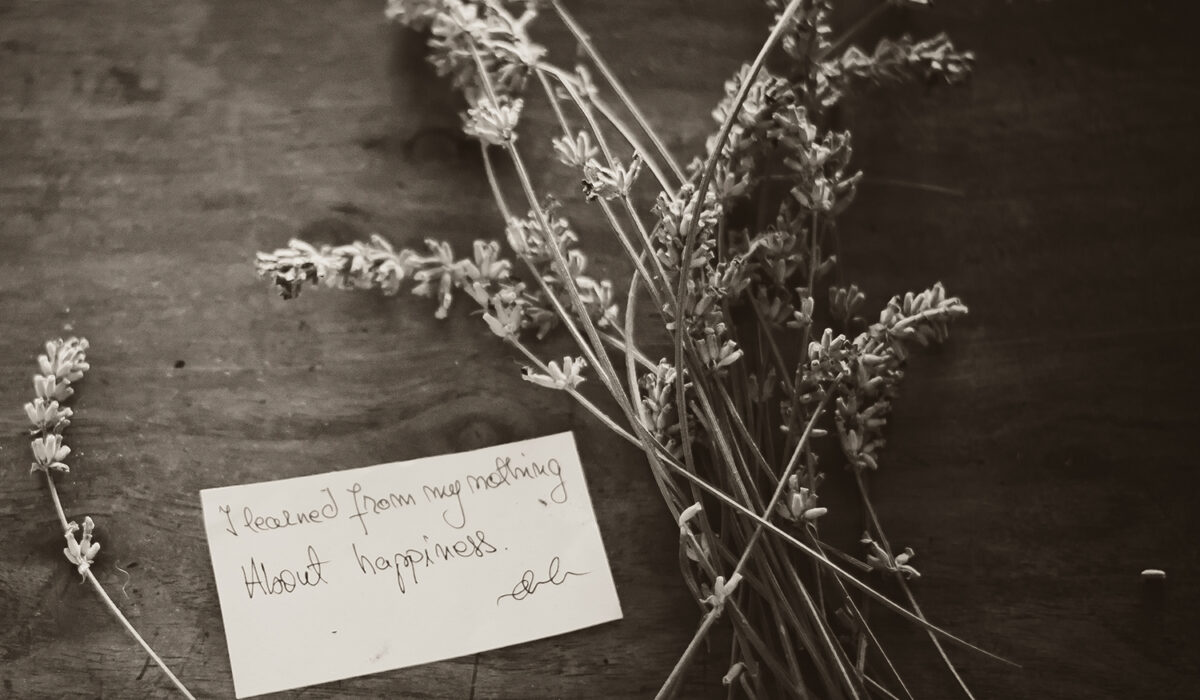 I learned from my nothing
About happiness.